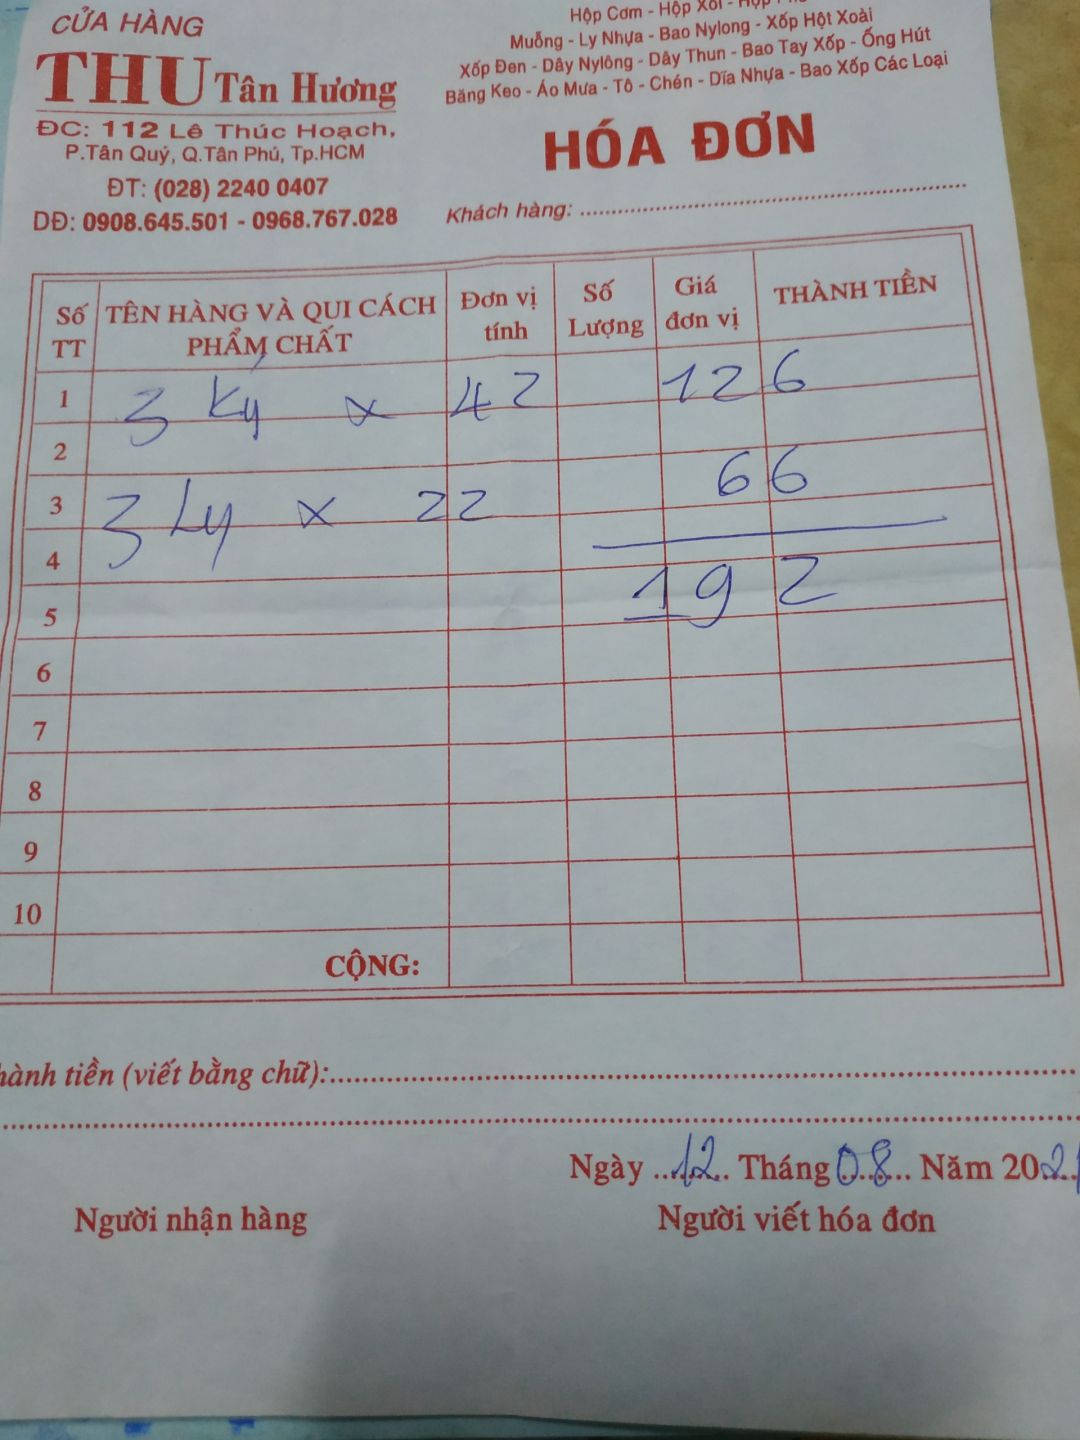 CỬA HÀNG
THU Tân Hương
ĐC: 112 Lê Thúc Hoạch,
P.Tân Quý, Q.Tân Phú, Tp.HCM
ĐT: (028) 2240 0407
DĐ: 0908.645.501 - 0968.767.028
Hộp Cơm - Hộp Xôi - Hộp
Muỗng - Ly Nhựa - Bao Nylong - Xốp Hột Xoài
Xốp Đen - Dây Nylông - Dây Thun - Bao Tay Xốp - Ống Hút
Băng Keo - Áo Mưa - Tô - Chén - Dĩa Nhựa - Bao Xốp Các Loại
HÓA ĐƠN
Khách hàng:
Số TT TÊN HÀNG VÀ QUI CÁCH PHẨM CHẤT Đơn vị tính Số Lượng Giá đơn vị THÀNH TIỀN
1 3 ký x 42 126
2
3 3 Ly x 22 66
4
5 192
6
7
8
9
10
CỘNG:
hành tiền (viết bằng chữ):
Ngày 12 Tháng 08 Năm 2021
Người nhận hàng Người viết hóa đơn